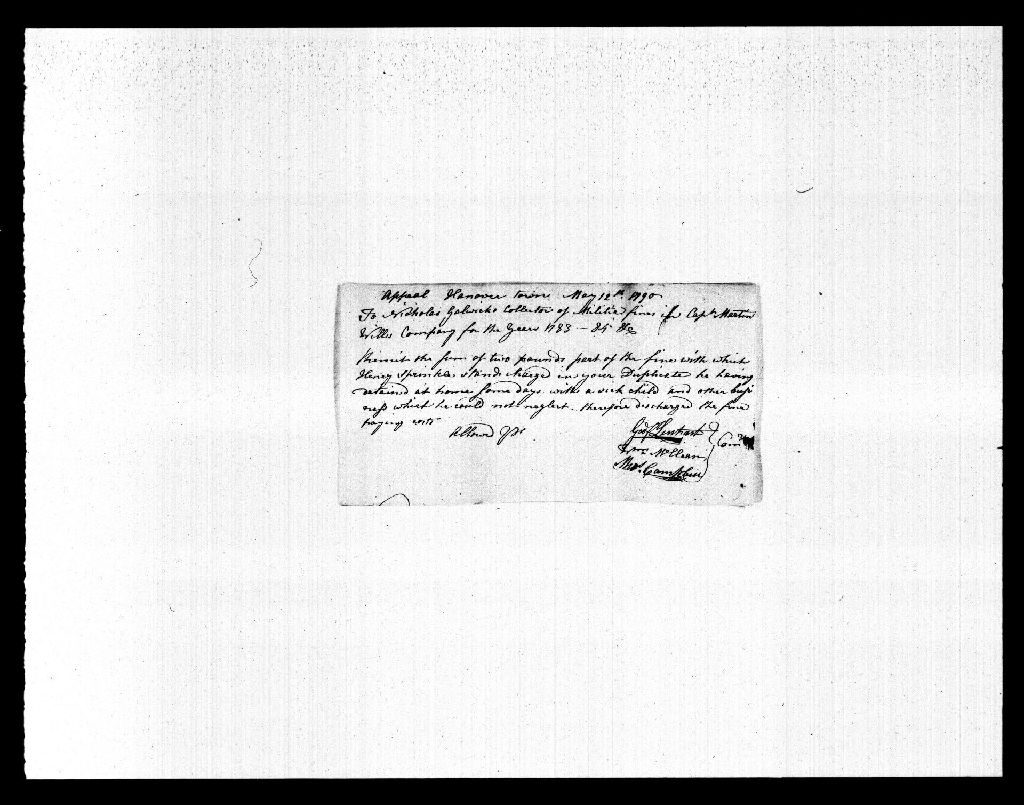 Appeal Hanover town May 12th 1790
To Nicholas Gelwicks Collector of Militia fines in Capt. Martin
Willis Company for the Years 1783 - 84 &c
Remit the sum of two pounds part of the fines with which
Henry Sprinkle Stands Charged in your Duplicate he having
detained at home Some days with a sick child and other busi
ness which he could not neglect. therefore discharged the fine
paying costs
Allowd
Lenhart
Wm McClean
Campbell